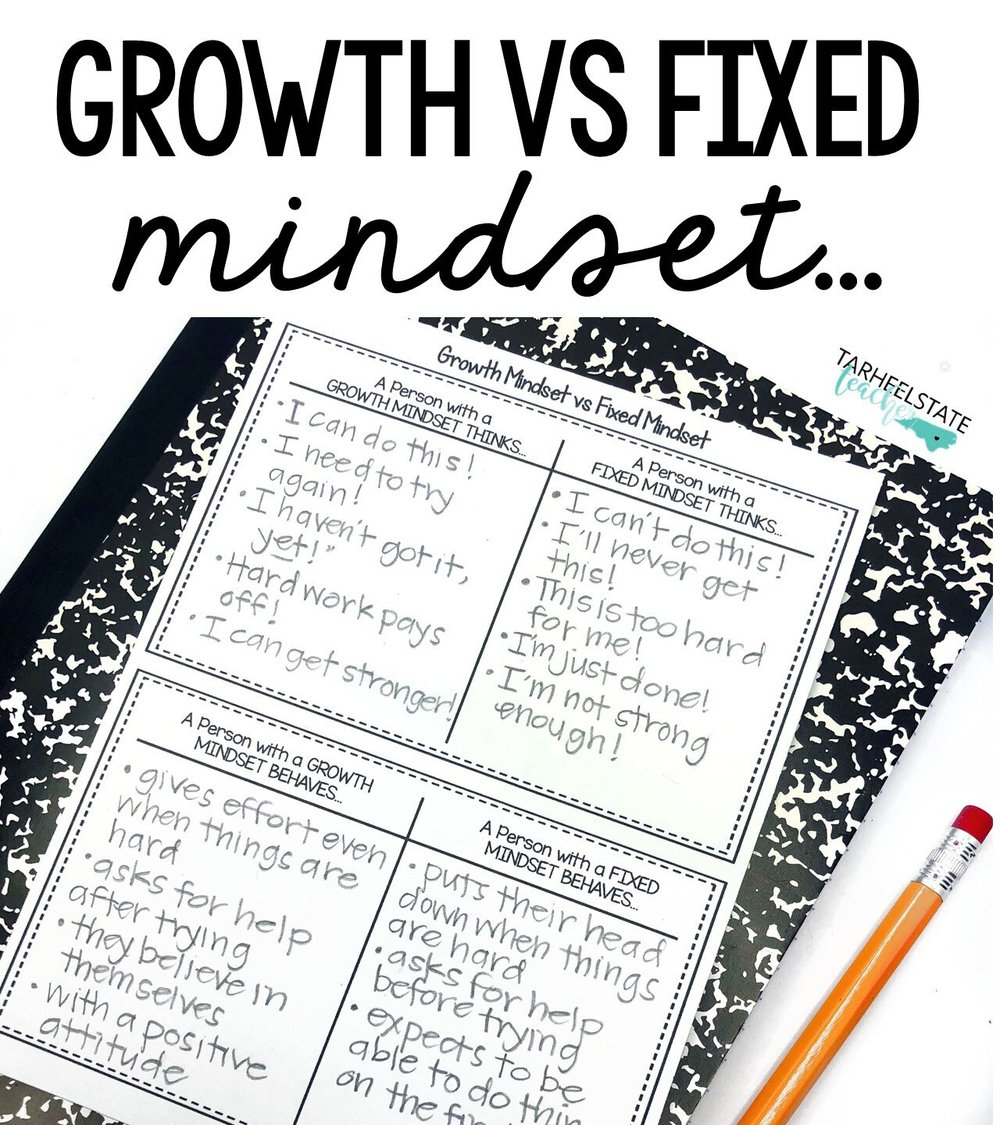 GROWTH VS FIXED
mindset...
TARHEELSTATE
teacher
Growth Mindset vs Fixed Mindset
A Person with a
GROWTH MINDSET THINKS...
• I can do this!
• I need to try
again!
• I haven't got it,
yet!"
• Hard work pays
off!
• I can get stronger!
A Person with a
FIXED MINDSET THINKS...
• I can't do this!
• I'll never get
this!
• This is too hard
for me!
• I'm just done!
• I'm not strong
enough!
A Person with a GROWTH
MINDSET BEHAVES...
• gives effort even
when things are
hard
• asks for help
after trying
• they believe in
themselves
• with a positive
attitude
A Person with a FIXED
MINDSET BEHAVES...
• puts their head
down when things
are hard
• asks for help
before trying
• expects to be
able to do
on the